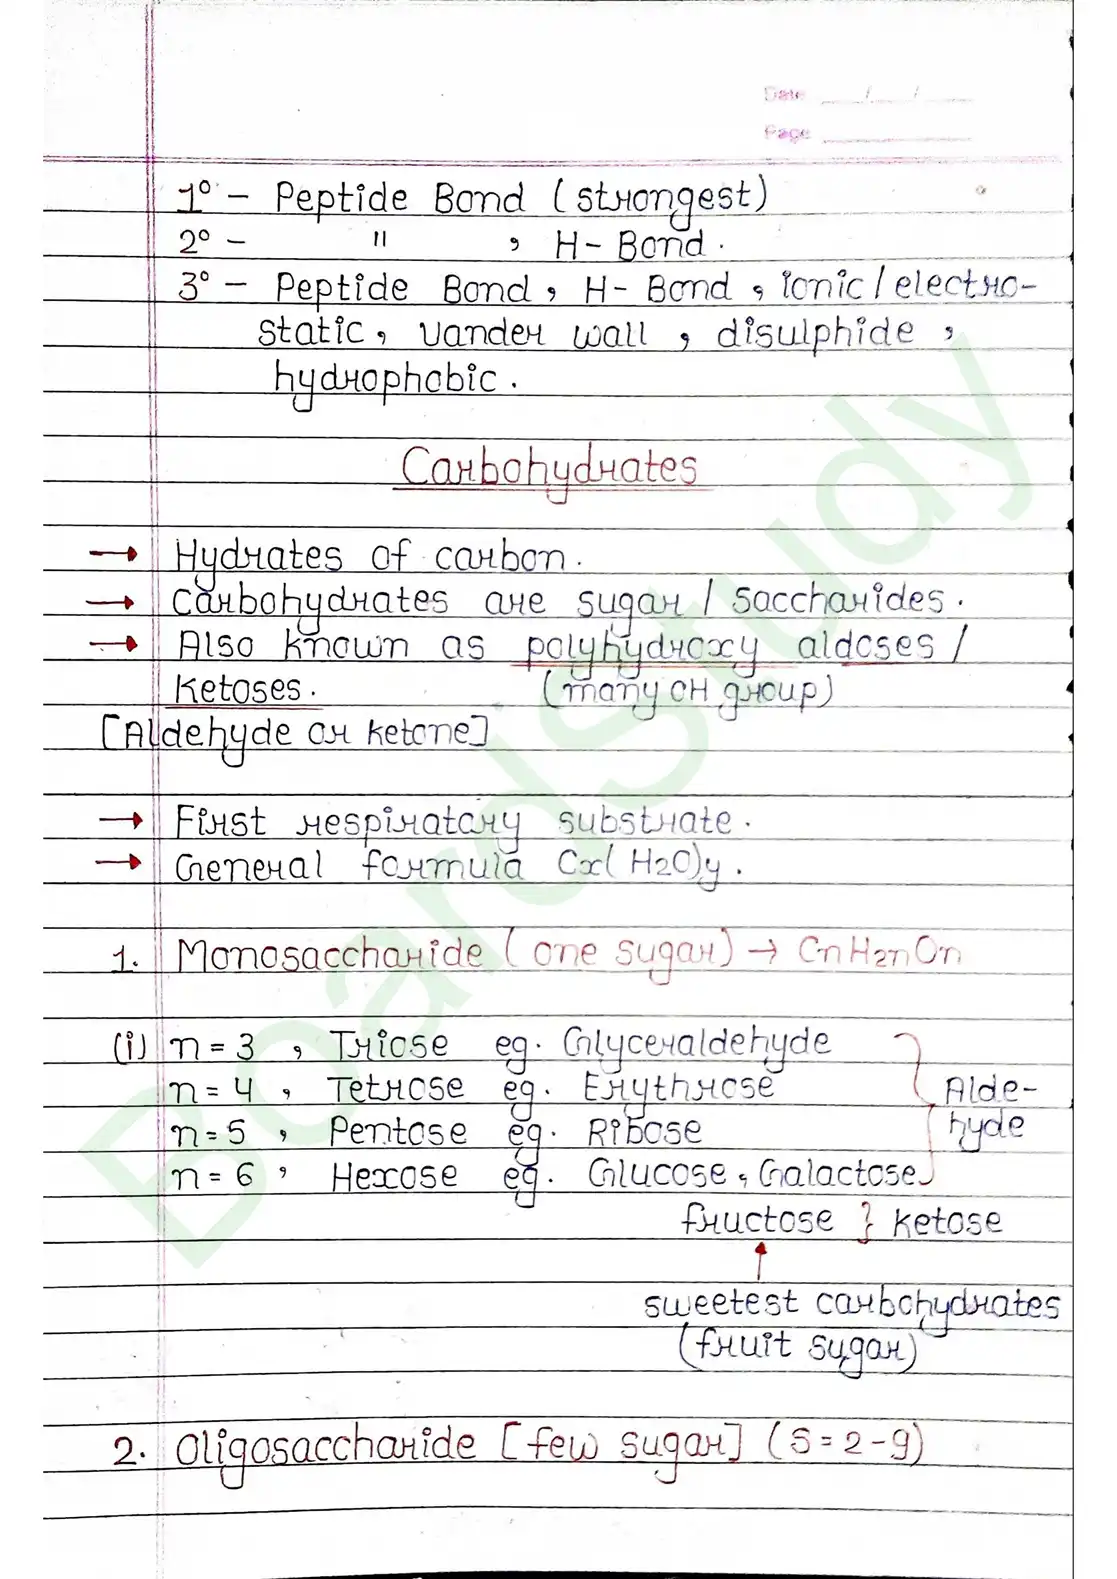 Date __/__/__
Page
1° - Peptide Bond (strongest)
2° - " , H-Bond.
3° - Peptide Bond, H-Bond, ionic/electro-
static, vander wall, disulphide,
hydrophobic.
Carbohydrates
→ Hydrates of carbon.
→ Carbohydrates are sugar / saccharides.
→ Also known as polyhydroxy aldoses /
Ketoses. (many OH group)
[Aldehyde or ketone]
→ First respiratory substrate.
→ General formula Cx(H2O)y.
1. Monosaccharide (one sugar) → CnH2nOn
(i) n=3, Triose eg. Glyceraldehyde
n=4, Tetrose eg. Erythrose
n=5, Pentose eg. Ribose
n=6, Hexose eg. Glucose, Galactose
Alde-
hyde
fructose } ketose
sweetest carbohydrates
(fruit sugar)
2. Oligosaccharide [few sugar] (S=2-9)
BoardStudy